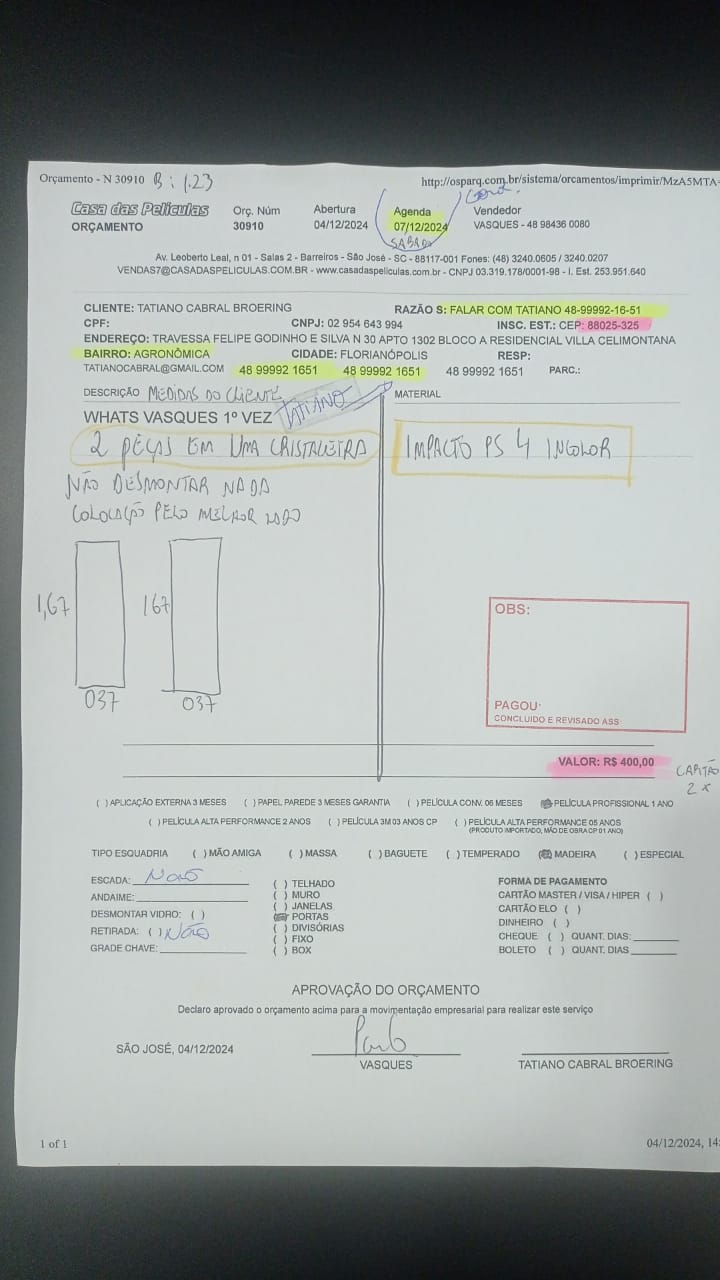 Orçamento - N 30910 B: 1.23
http://osparq.com.br/sistema/orcamentos/imprimir/MzA5MTA=
Casa das Películas
ORÇAMENTO
Orç. Núm
30910
Abertura
04/12/2024
Agenda
07/12/2024
SÁBADO
Vendedor
VASQUES - 48 98436 0080
Av. Leoberto Leal, n 01 - Salas 2 - Barreiros - São José - SC - 88117-001 Fones: (48) 3240.0605 / 3240.0207
VENDAS7@CASADASPELICULAS.COM.BR - www.casadaspeliculas.com.br - CNPJ 03.319.178/0001-98 - I. Est. 253.951.640
CLIENTE: TATIANO CABRAL BROERING RAZÃO S: FALAR COM TATIANO 48-99992-16-51
CPF: CNPJ: 02 954 643 994 INSC. EST.: CEP: 88025-325
ENDEREÇO: TRAVESSA FELIPE GODINHO E SILVA N 30 APTO 1302 BLOCO A RESIDENCIAL VILLA CELIMONTANA
BAIRRO: AGRONÔMICA CIDADE: FLORIANÓPOLIS RESP:
TATIANOCABRAL@GMAIL.COM 48 99992 1651 48 99992 1651 48 99992 1651 PARC.:
DESCRIÇÃO MEDIDAS DO CLIENTE
MATERIAL
WHATS VASQUES 1º VEZ TATIANO
2 PEÇAS EM UMA CRISTALEIRA
IMPACTO PS 4 INCOLOR
NÃO DESMONTAR NADA
COLOCAÇÃO PELO MELHOR LADO
1,67 167
037 037
OBS:
PAGOU:
CONCLUIDO E REVISADO ASS
VALOR: R$ 400,00
CARTÃO
2 x
( ) APLICAÇÃO EXTERNA 3 MESES ( ) PAPEL PAREDE 3 MESES GARANTIA ( ) PELÍCULA CONV. 06 MESES PELÍCULA PROFISSIONAL 1 ANO
( ) PELÍCULA ALTA PERFORMANCE 2 ANOS ( ) PELÍCULA 3M 03 ANOS CP ( ) PELÍCULA ALTA PERFORMANCE 05 ANOS
(PRODUTO IMPORTADO, MÃO DE OBRA CP 01 ANO)
TIPO ESQUADRIA ( ) MÃO AMIGA ( ) MASSA ( ) BAGUETE ( ) TEMPERADO MADEIRA ( ) ESPECIAL
ESCADA: NÃO
ANDAIME:
DESMONTAR VIDRO: ( )
RETIRADA: ( ) NÃO
GRADE CHAVE:
( ) TELHADO
( ) MURO
( ) JANELAS
PORTAS
( ) DIVISÓRIAS
( ) FIXO
( ) BOX
FORMA DE PAGAMENTO
CARTÃO MASTER / VISA / HIPER ( )
CARTÃO ELO ( )
DINHEIRO ( )
CHEQUE ( ) QUANT. DIAS:
BOLETO ( ) QUANT. DIAS
APROVAÇÃO DO ORÇAMENTO
Declaro aprovado o orçamento acima para a movimentação empresarial para realizar este serviço
SÃO JOSÉ, 04/12/2024
VASQUES
TATIANO CABRAL BROERING
1 of 1
04/12/2024, 14: